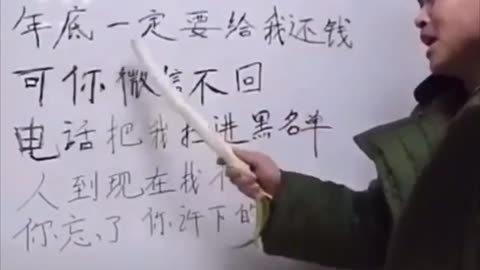 年底一定要给我还钱
可你微信不回
电话把我拉进黑名单
人到现在找不
你忘了你许下的